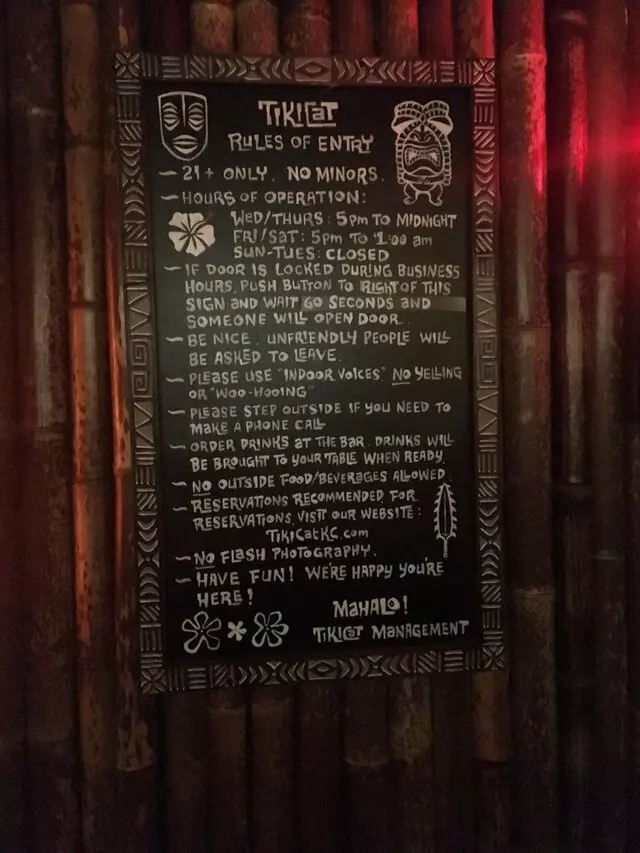 TIKICAT
RULES OF ENTRY
– 21+ ONLY. NO MINORS.
– HOURS OF OPERATION:
WED/THURS: 5pm TO MIDNIGHT
FRI/SAT: 5pm TO 1:00 am
SUN-TUES: CLOSED
– IF DOOR IS LOCKED DURING BUSINESS
HOURS, PUSH BUTTON TO RIGHT OF THIS
SIGN AND WAIT 60 SECONDS AND
SOMEONE WILL OPEN DOOR.
– BE NICE. UNFRIENDLY PEOPLE WILL
BE ASKED TO LEAVE.
– PLEASE USE "INDOOR VOICES" NO YELLING
OR "WOO-HOOING"
– PLEASE STEP OUTSIDE IF YOU NEED TO
MAKE A PHONE CALL
– ORDER DRINKS AT THE BAR. DRINKS WILL
BE BROUGHT TO YOUR TABLE WHEN READY.
– NO OUTSIDE FOOD/BEVERAGES ALLOWED
– RESERVATIONS RECOMMENDED FOR
RESERVATIONS, VISIT OUR WEBSITE:
TIKICatKC.com
– NO FLASH PHOTOGRAPHY.
– HAVE FUN! WE'RE HAPPY YOU'RE
HERE!
MAHALO!
TIKICAT MANAGEMENT